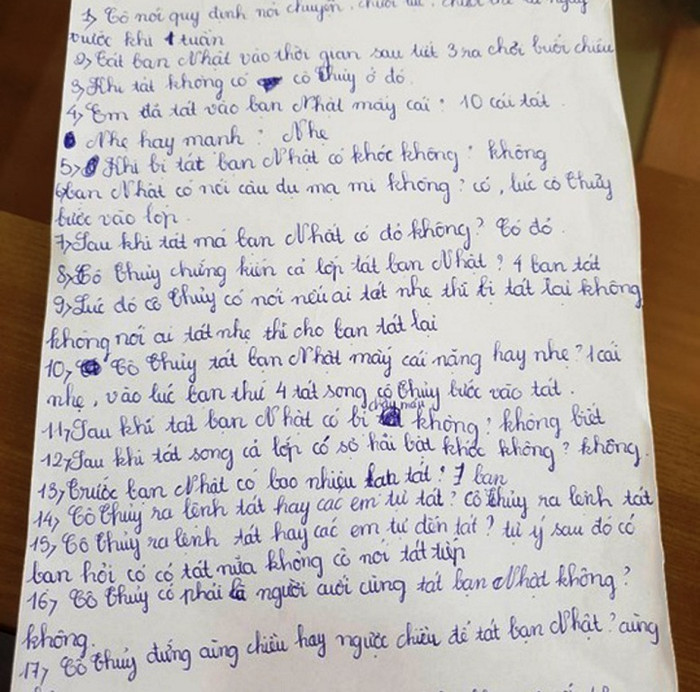 1, Cô nói quy định nói chuyện, chửi
trước khi 1 tuần
2, Tát bạn Nhật vào thời gian sau tiết 3 ra chơi buổi chiều
3, Khi tát không có cô Thủy ở đó.
4, Em đã tát vào bạn Nhật mấy cái? 10 cái tát.
Nhẹ hay mạnh? Nhẹ
5, Khi bị tát bạn Nhật có khóc không? không
6, bạn Nhật có nói câu dụ mạ mi không? có, lúc cô Thủy
bước vào lớp.
7, Sau khi tát má bạn Nhật có đỏ không? Có đỏ.
8, Cô Thủy chứng kiến cả lớp tát bạn Nhật? 4 bạn tát
9, Lúc đó cô Thủy có nói nếu ai tát nhẹ thì bị tát lại không
không nói ai tát nhẹ thì cho bạn tát lại
10, Cô Thủy tát bạn Nhật mấy cái nặng hay nhẹ? 1 cái
nhẹ, vào lúc bạn thứ 4 tát song cô Thủy bước vào tát.
11, Sau khi tát bạn Nhật có bị chảy máu không? không biết
12, Sau khi tát song cả lớp có sợ hãi bật khóc không? không.
13, Trước bạn Nhật có bao nhiêu bạn tát? 7 bạn
14, Cô Thủy ra lệnh tát hay các em tự tát? cô Thủy ra lệnh tát
15, Cô Thủy ra lệnh tát hay các em tự đến tát? tự ý sau đó có
bạn hỏi cô có tát nữa không cô nói tát tiếp
16, Cô Thủy có phải là người cuối cùng tát bạn Nhật không?
không.
17, Cô Thủy đứng cùng chiều hay ngược chiều để tát bạn Nhật? cùng